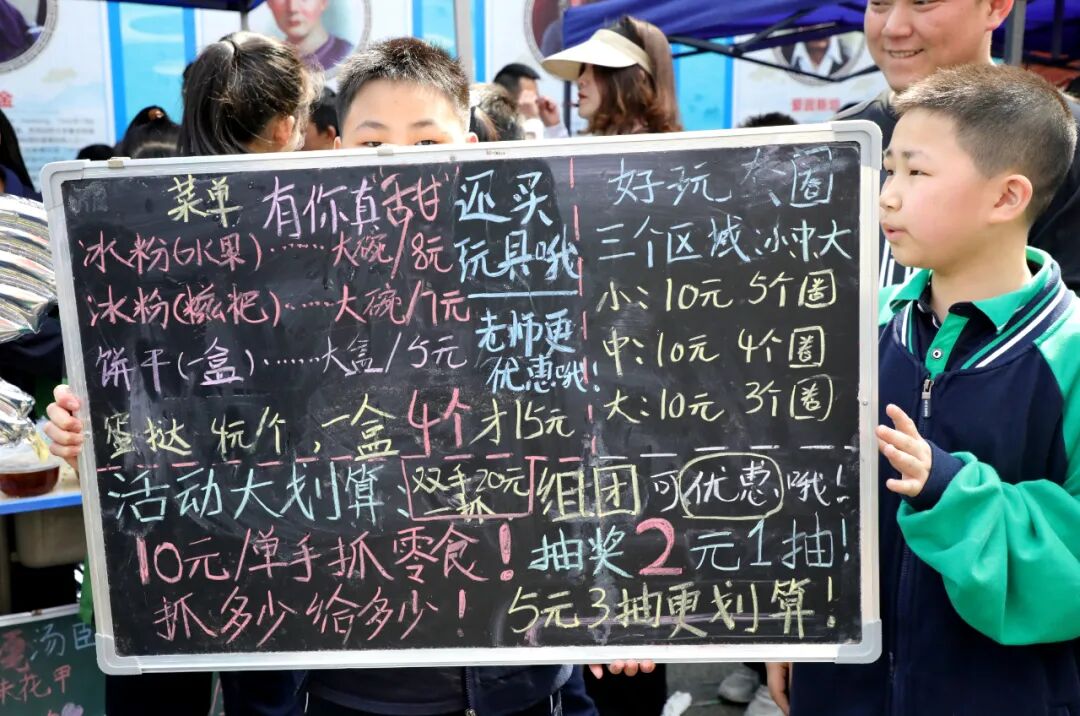 菜单 有你真"甜"
冰粉(水果)……大碗/8元
冰粉(糍粑)……大碗/7元
饼干(一盒)……大盒/5元
蛋挞 4元/个,一盒4个才15元
还买
玩具哦
老师更
优惠哦!
好玩 套圈
三个区域 小中大
小:10元 5个圈
中:10元 4个圈
大:10元 3个圈
活动大划算:双手20元一抓 组团可优惠哦!
10元/单手抓零食!
抓多少给多少!
抽奖2元1抽!
5元3抽更划算!
汤
花甲